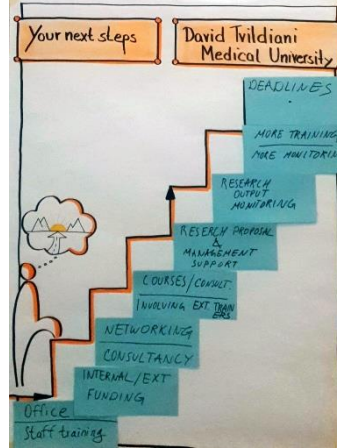 Your next steps
David Tvildiani
Medical University
DEADLINES
MORE TRAINING
MORE MONITORIN
RESEARCH
OUTPUT
MONITORING
RESERCH PROPOSAL
&
MANAGEMENT
SUPPORT
COURSES/CONSULT.
INVOLVING EXT. TRAIN
ERS
NETWORKING
CONSULTANCY
INTERNAL/EXT
FUNDING
Office
Staff training